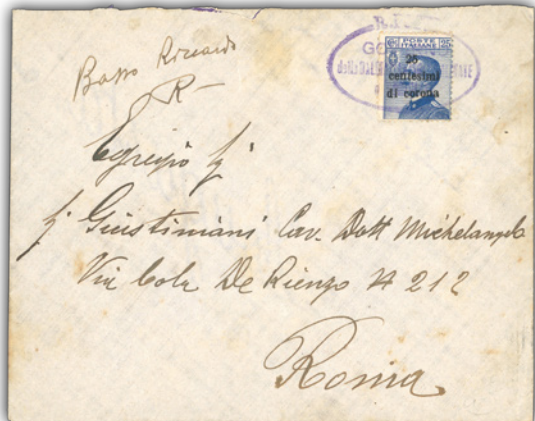 Basso Riccardo
R
GO
POSTE
ITALIANE
25
25
centesimi
di corona
Egregio Sig
Sig Giustiniani Cav. Dott Michelangelo
Via Cola Di Rienzo N 212
Roma